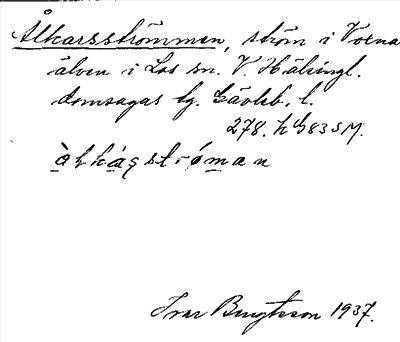 Ålkarsströmmen, ström i Voxna
älven i Los sn. V. Hälsingl.
domsagas tg. Gävleb. l.
278. h G83 S M.
Ivar Bengtsson 1937.